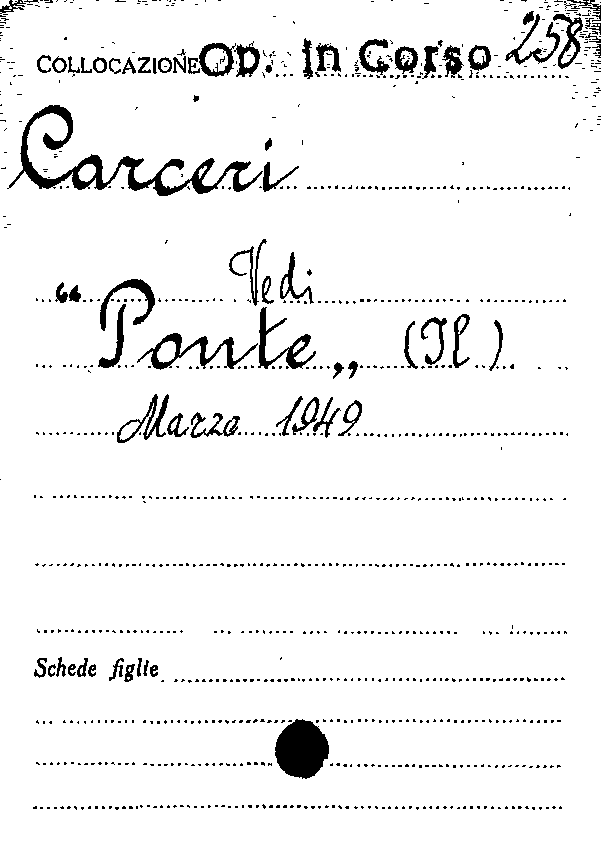 COLLOCAZIONE Op. in Corso 258
Carceri
Vedi
“Ponte„ (Il).
Marzo 1949
Schede figlie